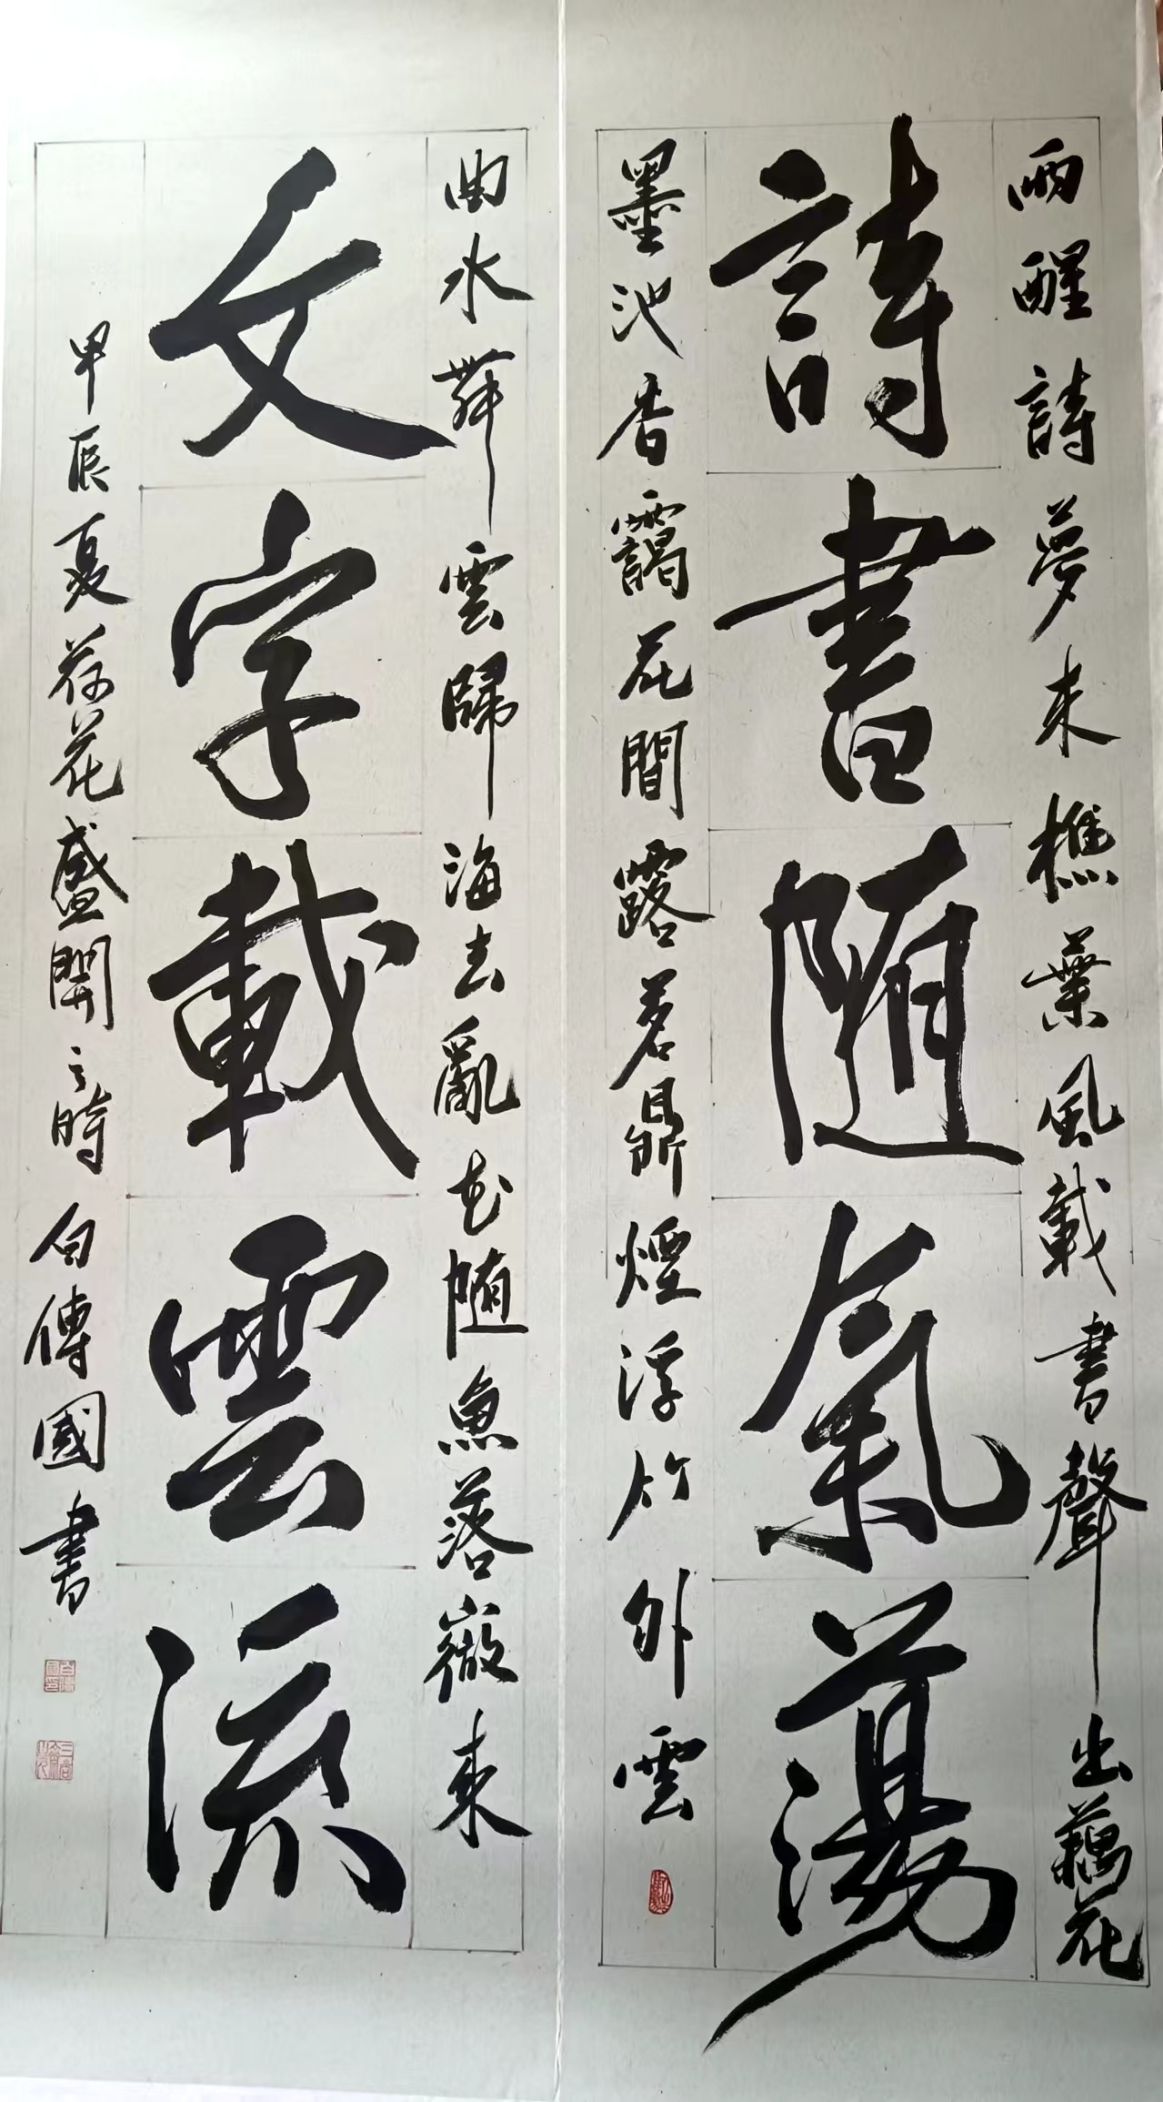 雨醒詩夢來樵葉風載書聲出藕花
詩書随氣蕩
墨池香靄花間露茗鼎煙浮竹外雲
曲水舞雲歸海去亂花随魚落嶶來
文字載雲流
甲辰夏荷花盛開之時白傳國書